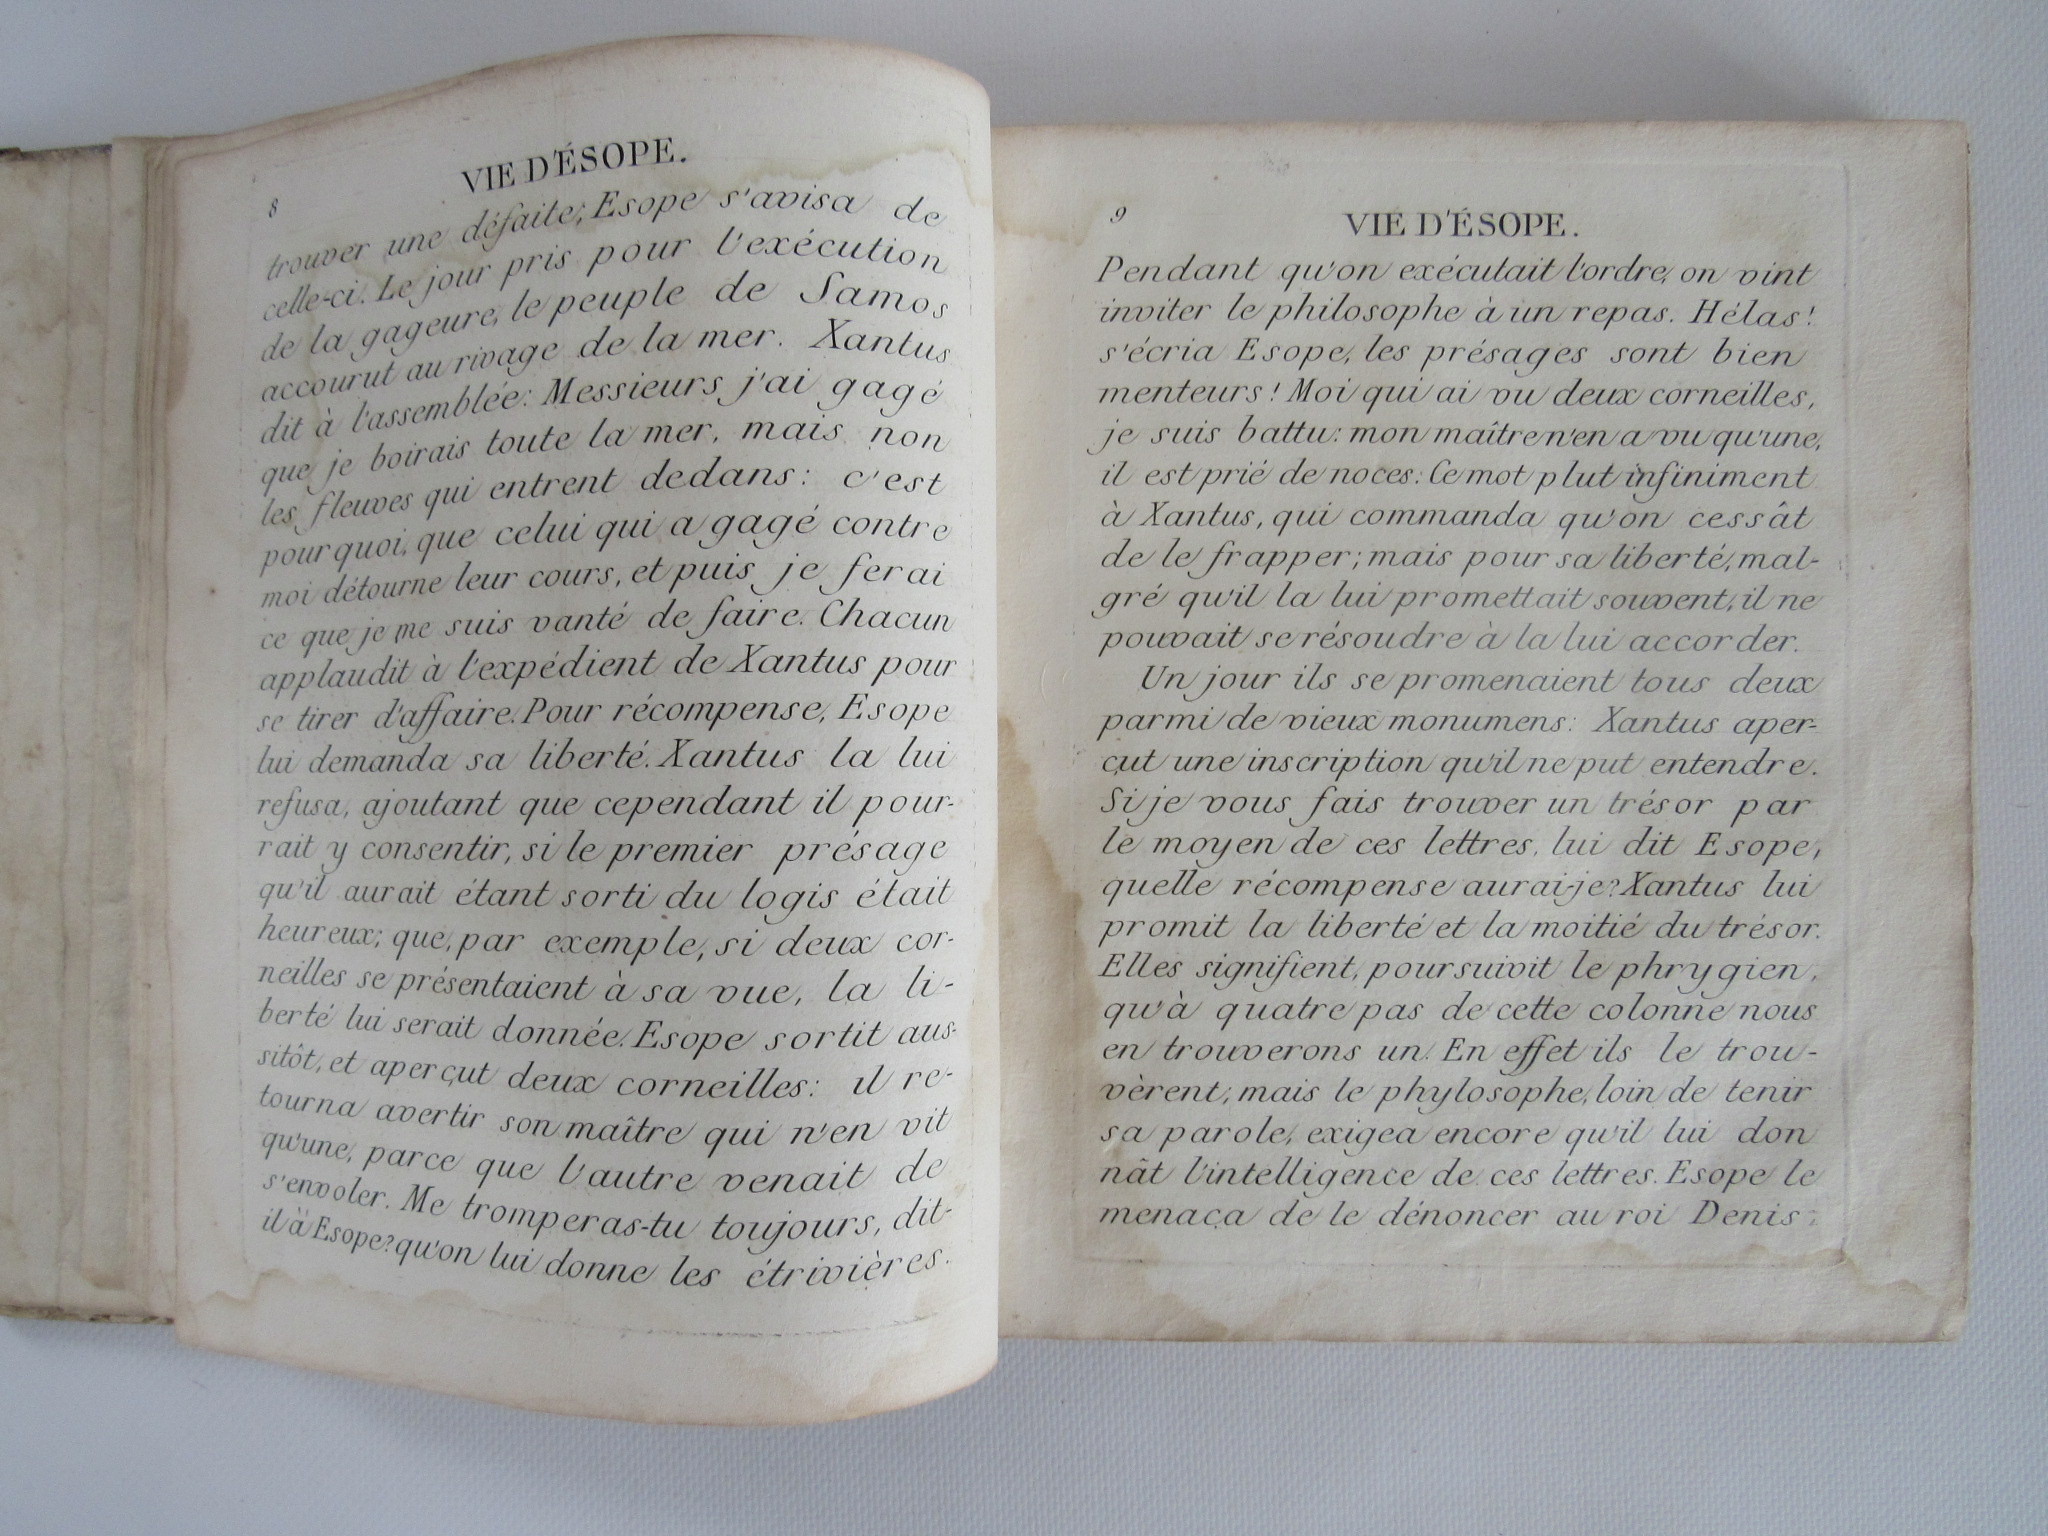 8
VIE D'ÉSOPE.
trouver une défaite; Esope s'avisa de
celle-ci. Le jour pris pour l'exécution
de la gageure, le peuple de Samos
accourut au rivage de la mer. Xantus
dit à l'assemblée: Messieurs j'ai gagé
que je boirais toute la mer, mais non
les fleuves qui entrent dedans: c'est
pourquoi, que celui qui a gagé contre
moi détourne leur cours, et puis je ferai
ce que je me suis vanté de faire. Chacun
applaudit à l'expédient de Xantus pour
se tirer d'affaire. Pour récompense, Esope
lui demanda sa liberté. Xantus la lui
refusa, ajoutant que cependant il pour-
rait y consentir, si le premier présage
qu'il aurait étant sorti du logis était
heureux; que, par exemple, si deux cor-
neilles se présentaient à sa vue, la li-
berté lui serait donnée. Esope sortit aus-
sitôt, et aperçut deux corneilles: il re-
tourna avertir son maître qui n'en vit
qu'une, parce que l'autre venait de
s'envoler. Me tromperas-tu toujours, dit-
il à Esope? qu'on lui donne les étrivières.
9
VIE D'ÉSOPE.
Pendant qu'on exécutait l'ordre, on vint
inviter le philosophe à un repas. Hélas!
s'écria Esope, les présages sont bien
menteurs! Moi qui ai vu deux corneilles,
je suis battu: mon maître n'en a vu qu'une,
il est prié de noces: Ce mot plut infiniment
à Xantus, qui commanda qu'on cessât
de le frapper; mais pour sa liberté, mal-
gré qu'il la lui promettait souvent, il ne
pouvait se résoudre à la lui accorder.
Un jour ils se promenaient tous deux
parmi de vieux monumens: Xantus aper-
çut une inscription qu'il ne put entendre.
Si je vous fais trouver un trésor par
le moyen de ces lettres, lui dit Esope,
quelle récompense aurai-je? Xantus lui
promit la liberté et la moitié du trésor.
Elles signifient, poursuivit le phrygien,
qu'à quatre pas de cette colonne nous
en trouverons un. En effet ils le trou-
vèrent; mais le phylosophe, loin de tenir
sa parole, exigea encore qu'il lui don
nât l'intelligence de ces lettres. Esope le
menaça de le dénoncer au roi Denis;